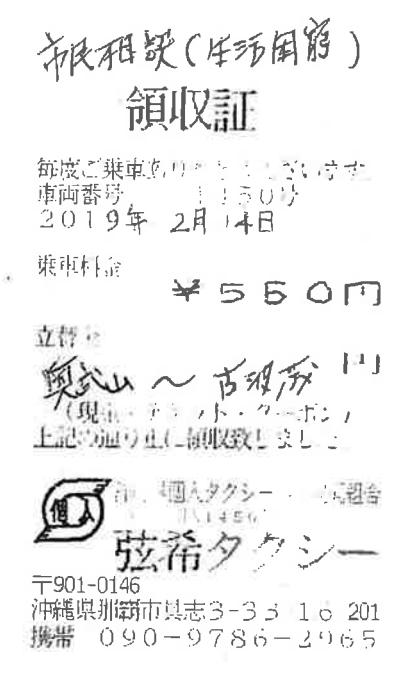 市民相談(生活困窮)
領収証
毎度ご乗車ありがとうございます
車両番号 1450号
2019年 2月14日
乗車料金
¥550円
立替金
円
奥武山 〜 古波蔵
(現金・チケット・クーポン)
上記の通り正に領収致しました
個人
個人タクシー 組合
1450
弦希タクシー
〒901-0146
沖縄県那覇市具志3-33 16 201
携帯 090-9786-2965